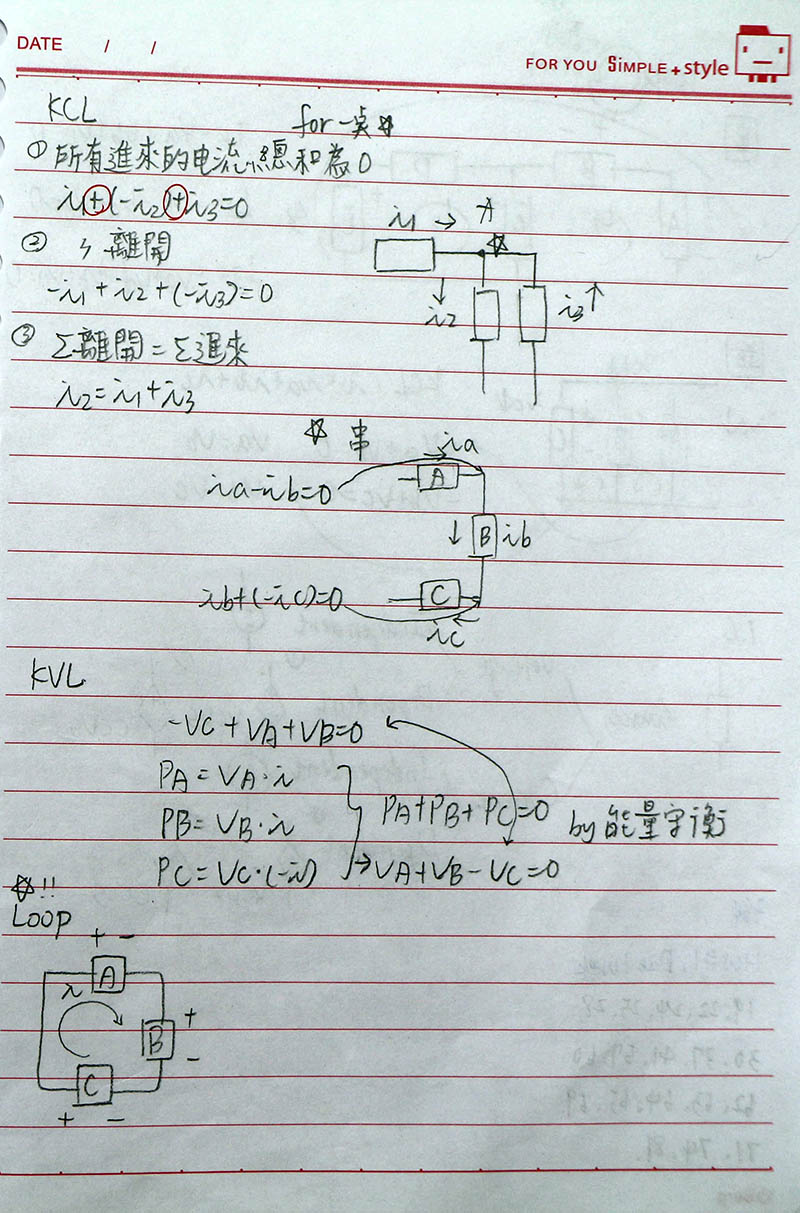 DATE / /
FOR YOU SiMPLE + style
KCL
for 一点☆
① 所有進來的电流總和為0
i1+(-i2)+i3=0
② 〃 離開
-i1+i2+(-i3)=0
③ Σ離開=Σ進來
i2=i1+i3
i1 → A
☆
i2
i3
☆ 串
ia
ia-ib=0
A
B ib
ib+(-ic)=0
C
ic
KVL
-VC+VA+VB=0
PA=VA·i
PB=VB·i
PA+PB+PC=0 by 能量守衡
PC=VC·(-i) → VA+VB-VC=0
☆!!
LOOP
+ -
A
i
+
B
-
C
+ -